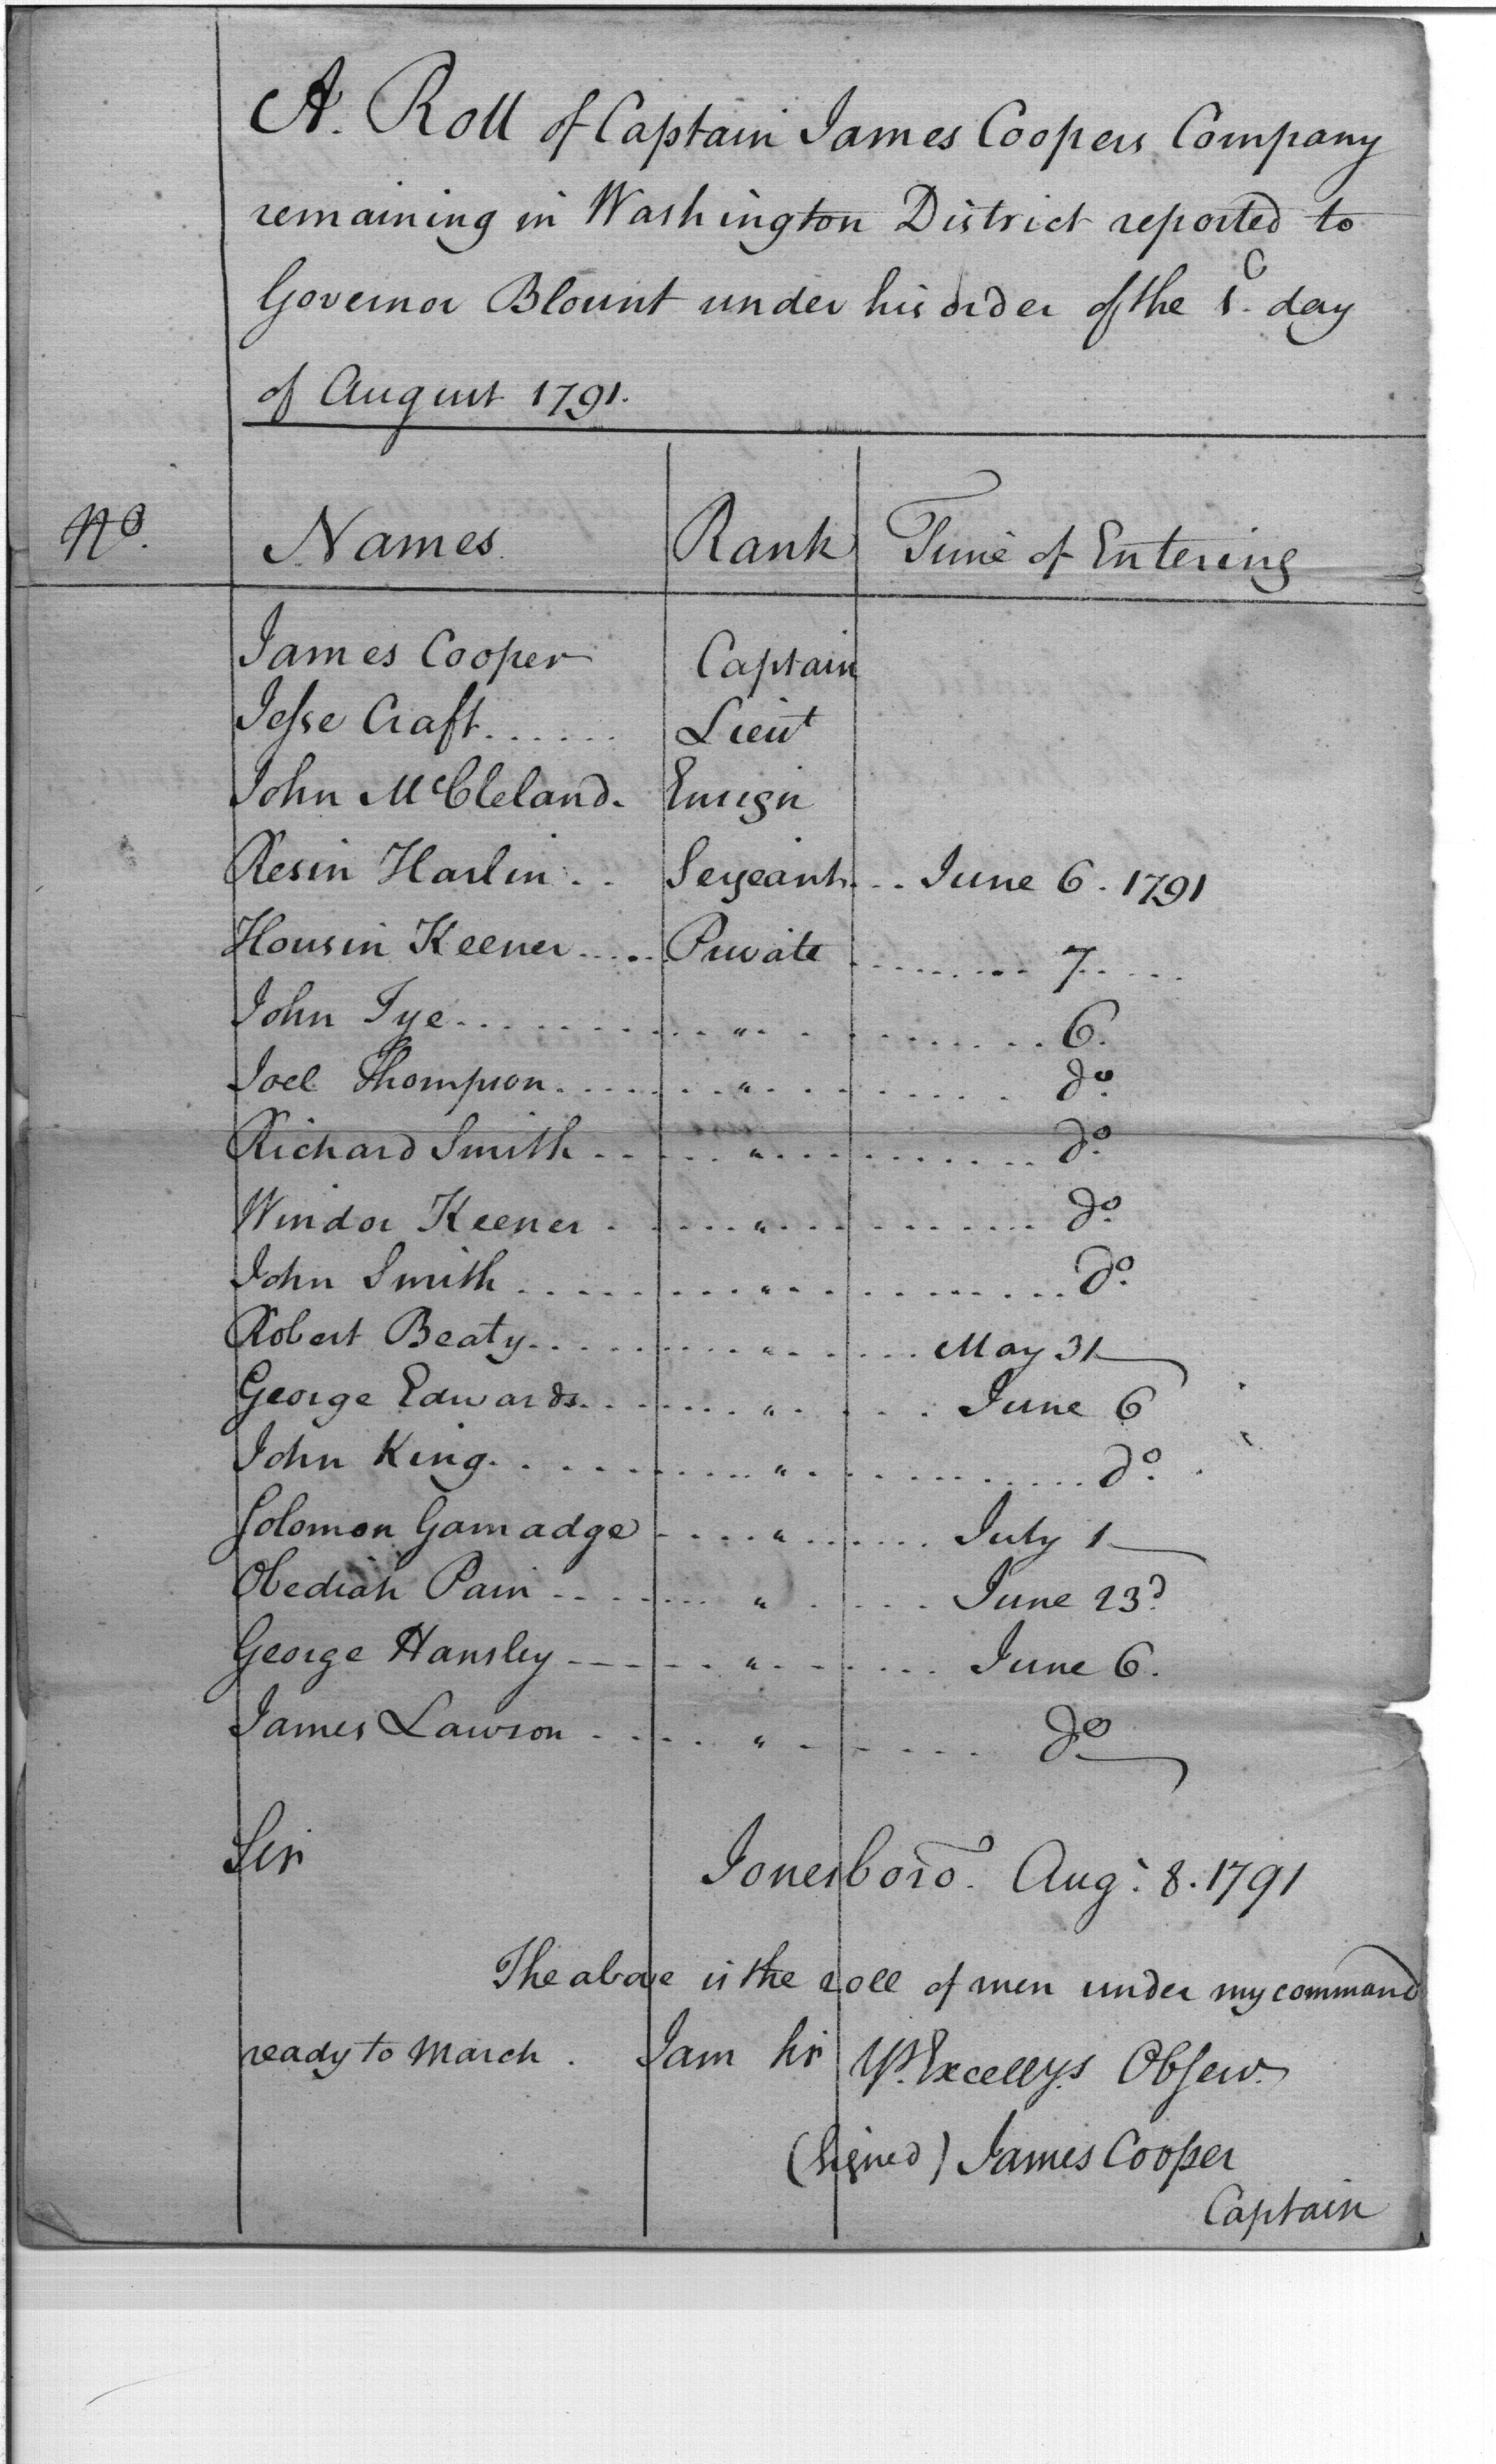 A. Roll of Captain James Coopers Company
remaining in Washington District reported to
Governor Blount under his order of the day
of August 1791.
No. Names Rank Time of Entering
James Cooper Captain
Jesse Craft...... Lieut
John McCleland. Ensign
Resin Harlin.. Sergeant... June 6. 1791
Housin Keener..... Private ......... 7.....
John Tye......... " ......... 6.
Joel Thompson....... " ......... do.
Richard Smith..... " ......... do.
Windor Keener..... " ......... do.
John Smith........ " ......... do.
Robert Beaty........ " ...... May 31
George Edwards...... " ..... June 6
John King.......... " ......... do.
Solomon Gamadge .... " ...... July 1
Obediah Pain ....... " ..... June 23d
George Hansley ----- " ...... June 6.
James Lawson ..... " ...... do
Sir
Jonesboro. Augt. 8. 1791
The above is the roll of men under my command
ready to March. I am Sir Yr. Excellys Observ.
(Signed) James Cooper
Captain